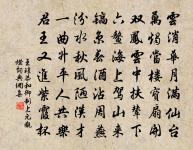 雲消華月滿仙台
萬燭當樓寶扇開
雙鳳雲中扶輦下
六鰲海上駕山來
鎬京春酒沾周宴
汾水秋風陋漢才
一曲升平人共樂
君王又進紫霞杯
王珪恭和御制上元觀
燈詩